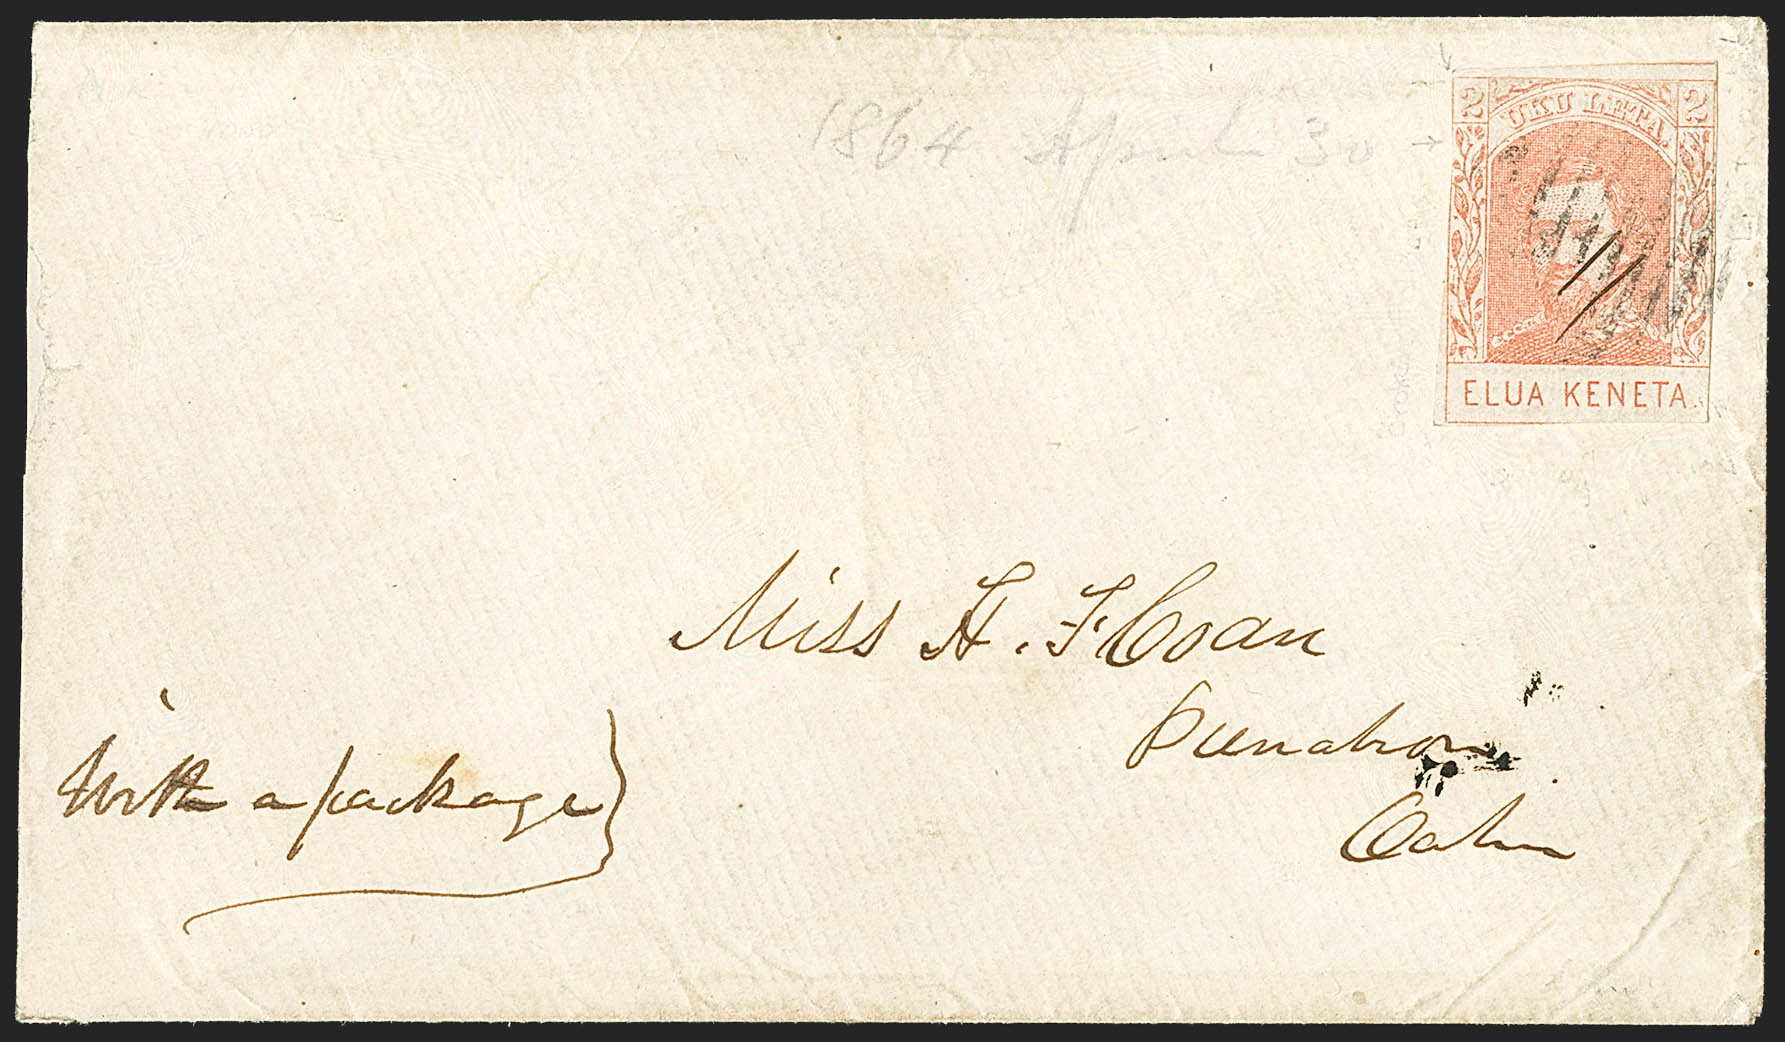 1864 April 30
2 UKU LETA. 2
ELUA KENETA
Miss H. F. Coan
Punahou
Oahu
With a package